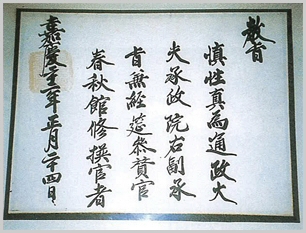 教旨
慎性真為通政大
夫承政院右副承
旨兼經筵叅贊官
春秋館修撰官者
嘉慶二十一年正月二十四日